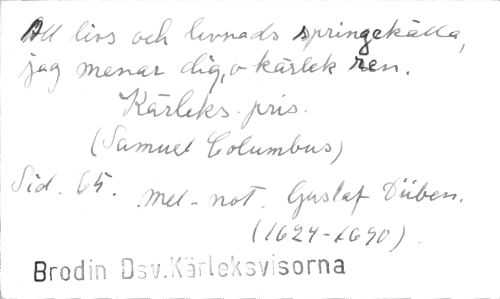 All livs och levnads springekälla,
jag menar dig, o kärlek ren.
Kärleks pris.
(Samuel Columbus)
Sid. 65. mel-not. Gustaf Düben.
(1624-1690).
Brodin Dsv.Kärleksvisorna